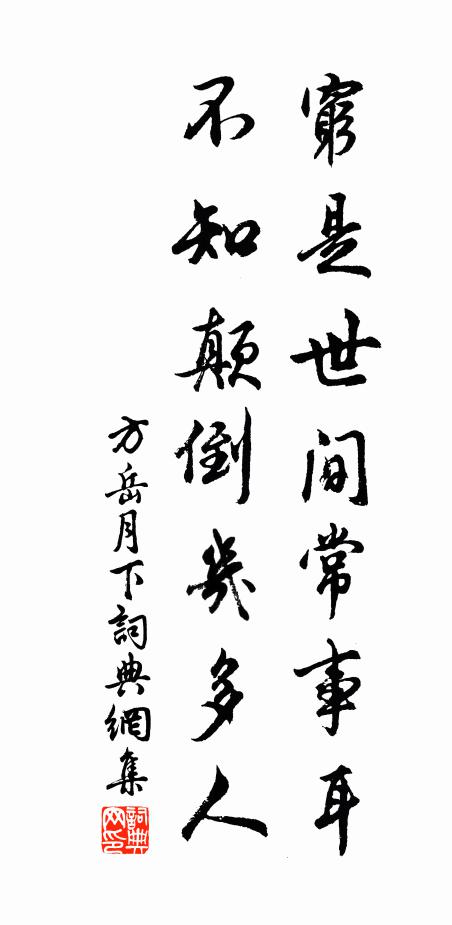 窮是世間常事耳
不知顛倒幾多人
方岳月下詞典網集
詞典网印